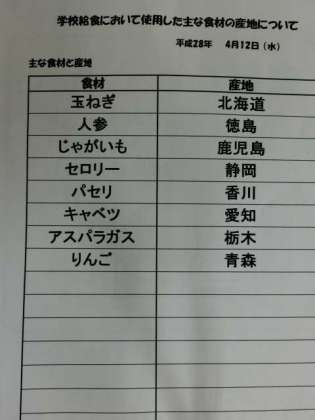 学校給食において使用した主な食材の産地について
平成28年 4月12日(水)
主な食材と産地
食材 産地
玉ねぎ 北海道
人参 徳島
じゃがいも 鹿児島
セロリー 静岡
パセリ 香川
キャベツ 愛知
アスパラガス 栃木
りんご 青森